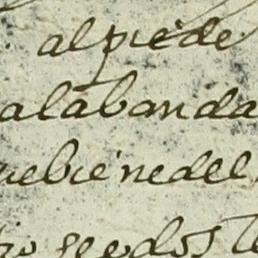 al pie de
a la banda
que biene del